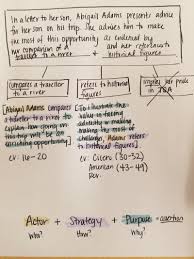 In a letter to her son, Abigail Adams presents advice
for her son on his trip. She advises him to make
the most of this opportunity as evidenced by
her comparison of a and her reference to
traveller to a river historical figures
compares a traveller
to a river
refers to historical
figures
pride
in USA
[Abigail Adams compares
a traveller to a river to
explain how going on
this trip will be an
exciting opportunity]
[To illustrate the
value in facing
difficulty or making
making the most of
challenge, Adams refers
to historical figures]
ev: 16-20
ev: Cicero (30-32)
American (43-49)
Rev.
Actor + Strategy + Purpose = assertion
Who? How? Why?